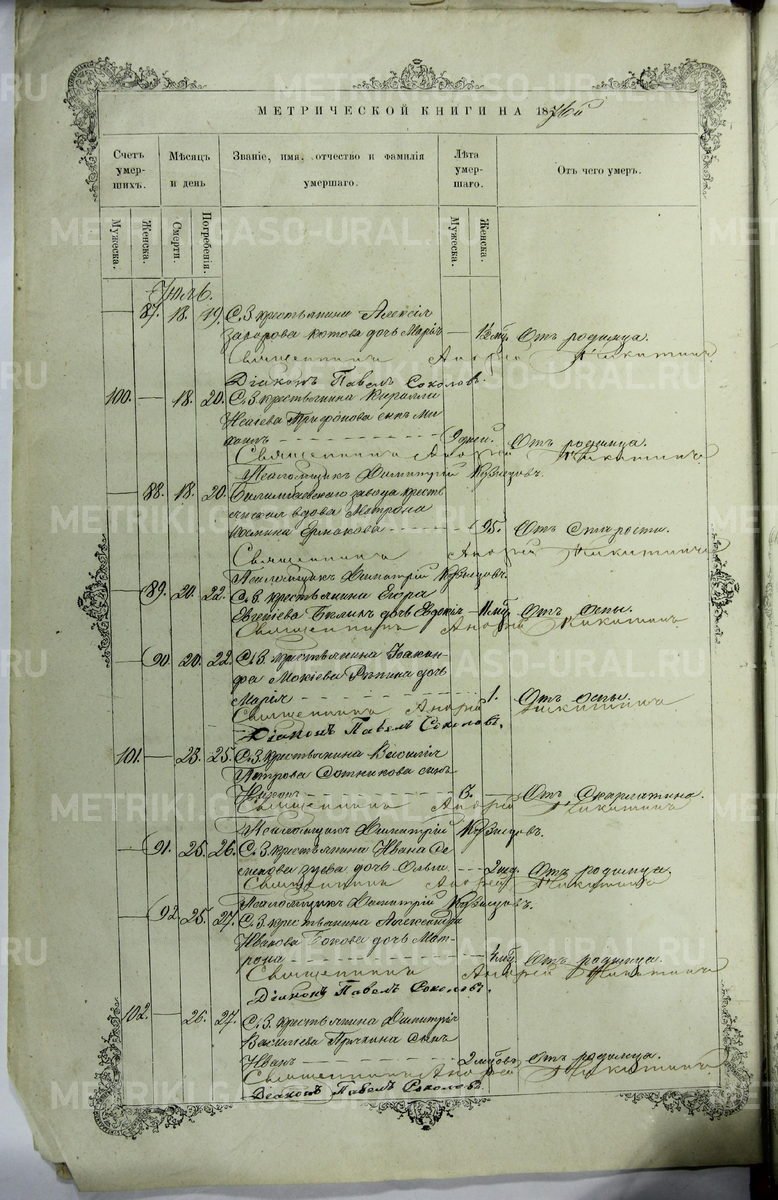 МЕТРИЧЕСКОЙ КНИГИ НА 1876й
Счетъ умершихъ. Мѣсяцъ и день Званіе, имя, отчество и фамилія умершаго. Лѣта умершаго. Отъ чего умеръ.
Мужеска. Женска. Смерти. Погребенія. Мужеска. Женска.
Іюль.
87. 18. 19. С. З. крестьянина Алексія
Захарова Котова дочь Марія — Отъ родимца.
Священникъ Андрей Никитинъ
Діаконъ Павелъ Соколовъ.
100. — 18. 20. С. З. крестьянина Кирилла
Исаіева Трифонова сынъ Ми-
хаилъ 9 дней. Отъ родимца.
Священникъ Андрей Никитинъ
Псаломщикъ Димитрій
— 88. 18. 20. Билимбаевского завода кресть-
янская вдова Матрона
Ермакова — 95. Отъ старости.
Священникъ Андрей Никитинъ
Псаломщикъ Димитрій
— 89. 20. 22. С. З. крестьянина Егора
дочь Евдокія — Отъ оспы.
Священникъ Андрей Никитинъ
— 90. 20. 22. С. З. крестьянина
Мокіева дочь
Марія 1. Отъ оспы.
Священникъ Андрей Никитинъ
Діаконъ Павелъ Соколовъ.
101. — 23. 25. С. З. крестьянина Василія
Петрова Сотникова сынъ
Отъ скарлатина.
Священникъ Андрей Никитинъ
Псаломщикъ Димитрій
— 91. 25. 26. С. З. крестьянина Ивана
Зуева дочь Ольга — Отъ родимца.
Священникъ Андрей Никитинъ
Псаломщикъ Димитрій
— 92. 25. 27. С. З. крестьянина Александра
Иванова Бокова дочь Мат-
рона Отъ родимца.
Священникъ Андрей Никитинъ
Діаконъ Павелъ Соколовъ.
102. — 26. 27. С. З. крестьянина Димитрія
Васильева сынъ
Иванъ Отъ родимца.
Священникъ Андрей Никитинъ
Діаконъ Павелъ Соколовъ
METRIKI.GASO-URAL.RU